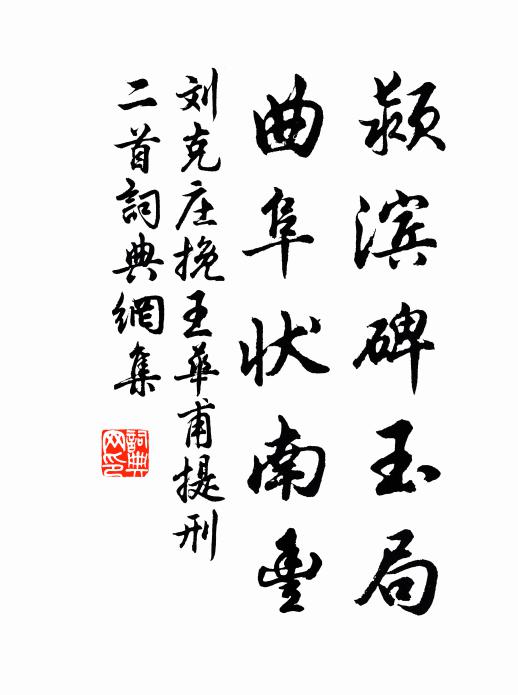 颍滨碑玉局
曲阜状南豐
刘克庄挽王華甫提刑
二首詞典網集
詞典网印